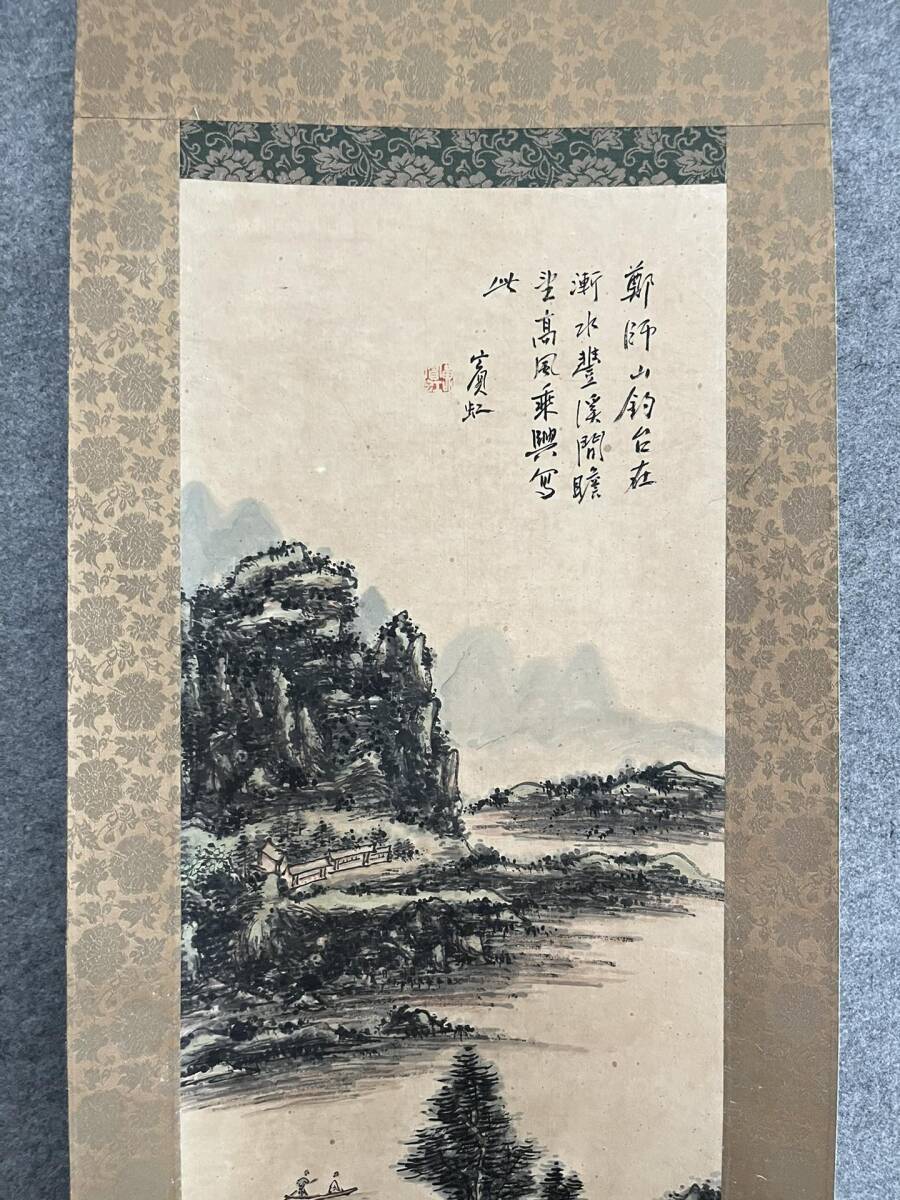 鄭師山釣台在
漸水豐溪間瞻
望高風乘興寫
此
賓虹